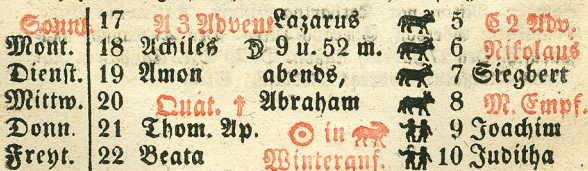 Sonnt. 17 A 3 Advent Lazarus 5 E 2 Adv.
Mont. 18 Achiles D 9 u. 52 m. 6 Nikolaus
Dienst. 19 Amon abends, 7 Siegbert
Mittw. 20 Quat. † Abraham 8 M. Empf.
Donn. 21 Thom. Ap. ☉ in 9 Joachim
Freyt. 22 Beata Winteranf. 10 Juditha